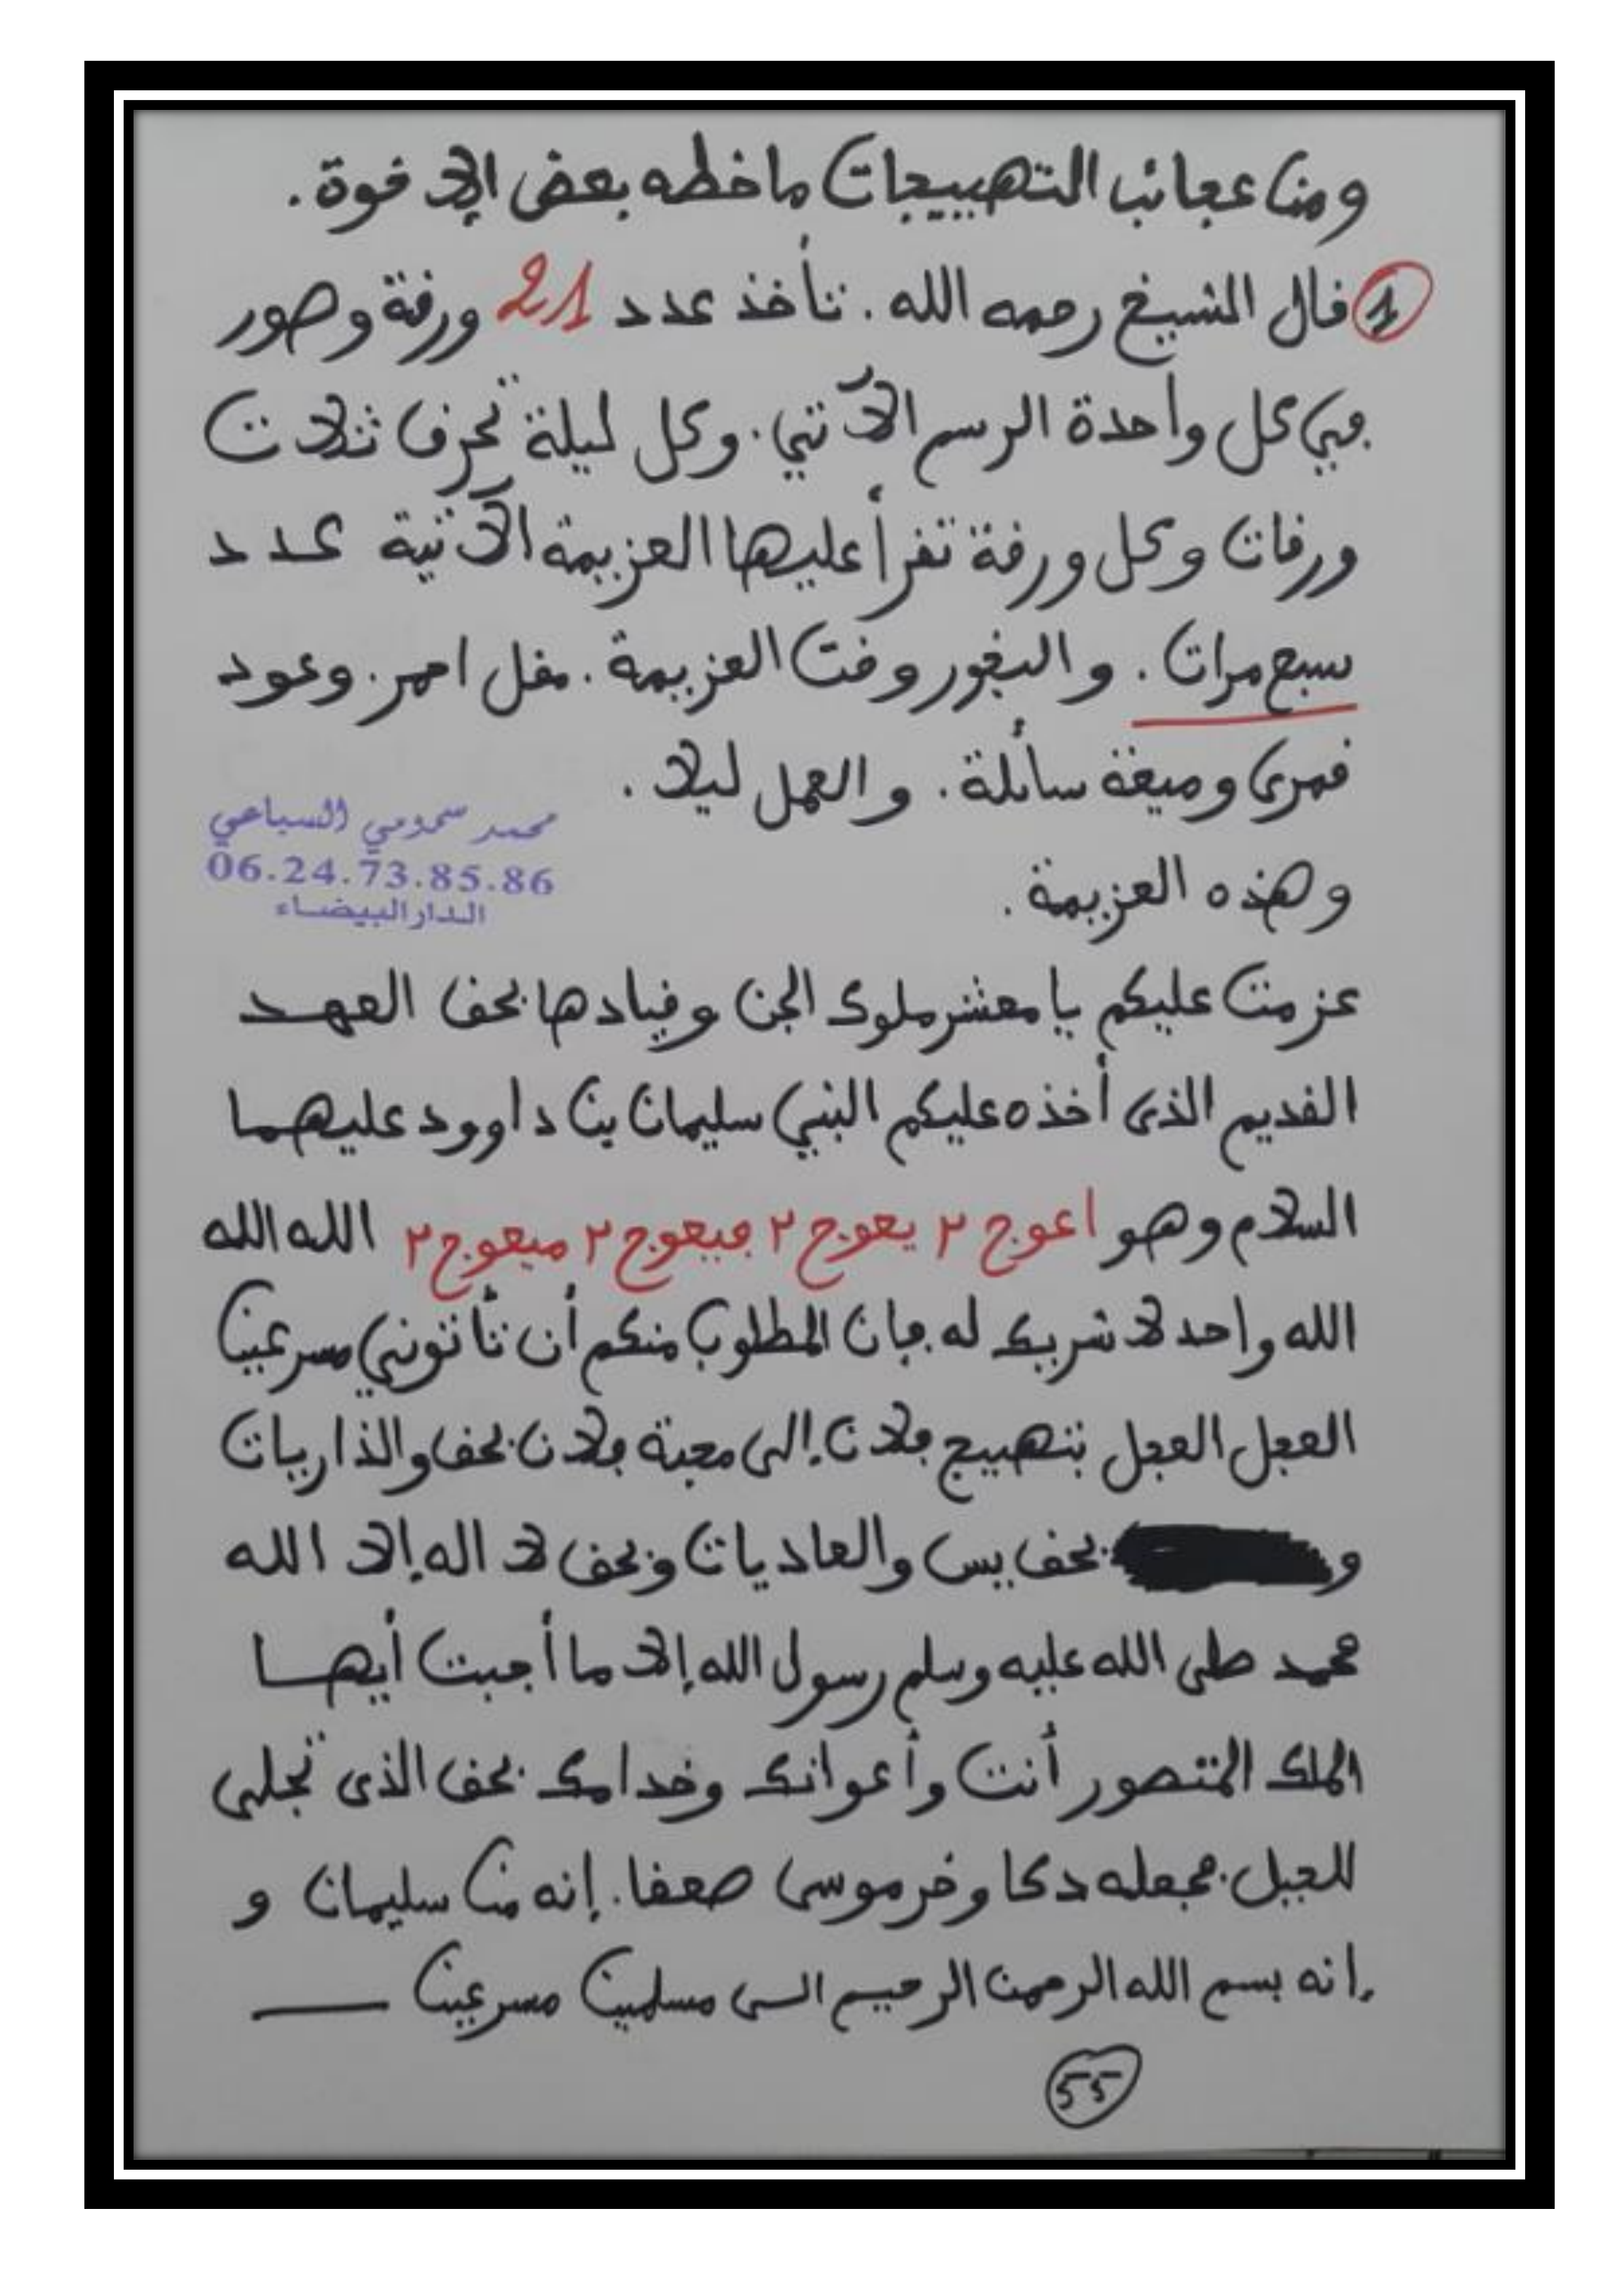 ومن عجائب التهييجات ما خطه بعض الإخوة.
1 قال الشيخ رحمه الله. تأخذ عدد 21 ورقة وصور
في كل واحدة الرسم الآتي. وكل ليلة تحرق ثلاث
ورقات وكل ورقة تقرأ عليها العزيمة الآتية عدد
سبع مرات. والبخور وقت العزيمة. مقل احمر. وعود
قمرى وميعة سائلة. والعمل ليلا.
محمد سمومي السباعي
06.24.73.85.86
الدار البيضاء
وهذه العزيمة.
عزمت عليكم يا معشر ملوك الجن وقيادها بحق العهد
القديم الذى أخذه عليكم النبي سليمان بن داوود عليهما
السلام وهو اعوج ٢ يعوج ٢ فيعوج ٢ ميعوج ٢ الله الله
الله واحد لا شريك له فإن المطلوب منكم أن تأتوني مسرعين
العجل العجل بتهييج فلان إلى محبة فلان بحق والذاريات
و بحق يس والعاديات وبحق لا اله إلا الله
محمد صلى الله عليه وسلم رسول الله إلا ما أجبت أيها
الملك المتصور أنت وأعوانك وخدامك بحق الذى تجلى
للجبل فجعله دكا وخر موسى صعقا. إنه من سليمان و
إنه بسم الله الرحمن الرحيم الى مسلمين مسرعين
55